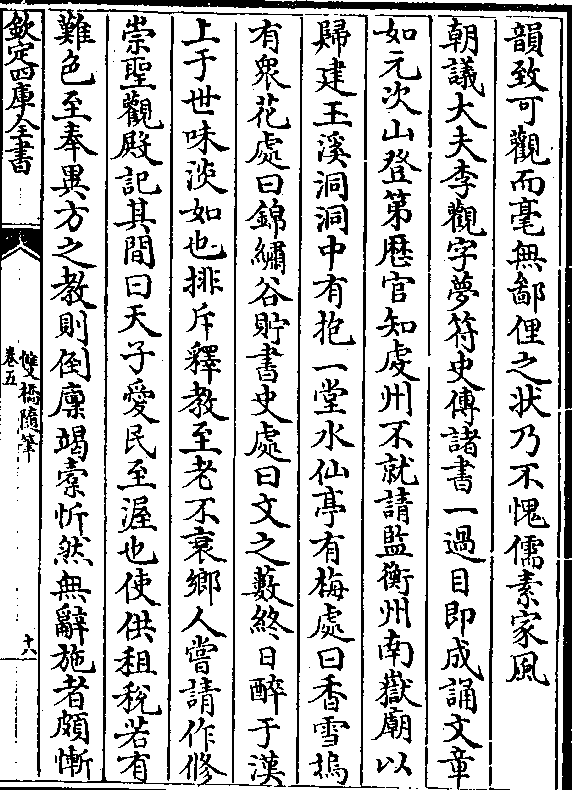 韻致可觀而毫無鄙俚之狀乃不愧儒素家風
朝議大夫李觀字夢符史傳諸書一過目即成誦文章
如元次山登第歴官知䖍州不就請監衡州南嶽廟以
歸建玉溪洞洞中有抱一堂水仙亭有梅處曰香雪塢
有衆花處曰錦繡谷貯書史處曰文之藪終日醉于漢
上于世味淡如也排斥釋教至老不衰鄉人嘗請作修
崇聖觀殿記其間曰天子愛民至渥也使供租稅若有
難色至奉異方之教則倒廪竭橐忻然無辭施者頗慚
欽定四庫全書
雙橋隨筆
卷五
十六